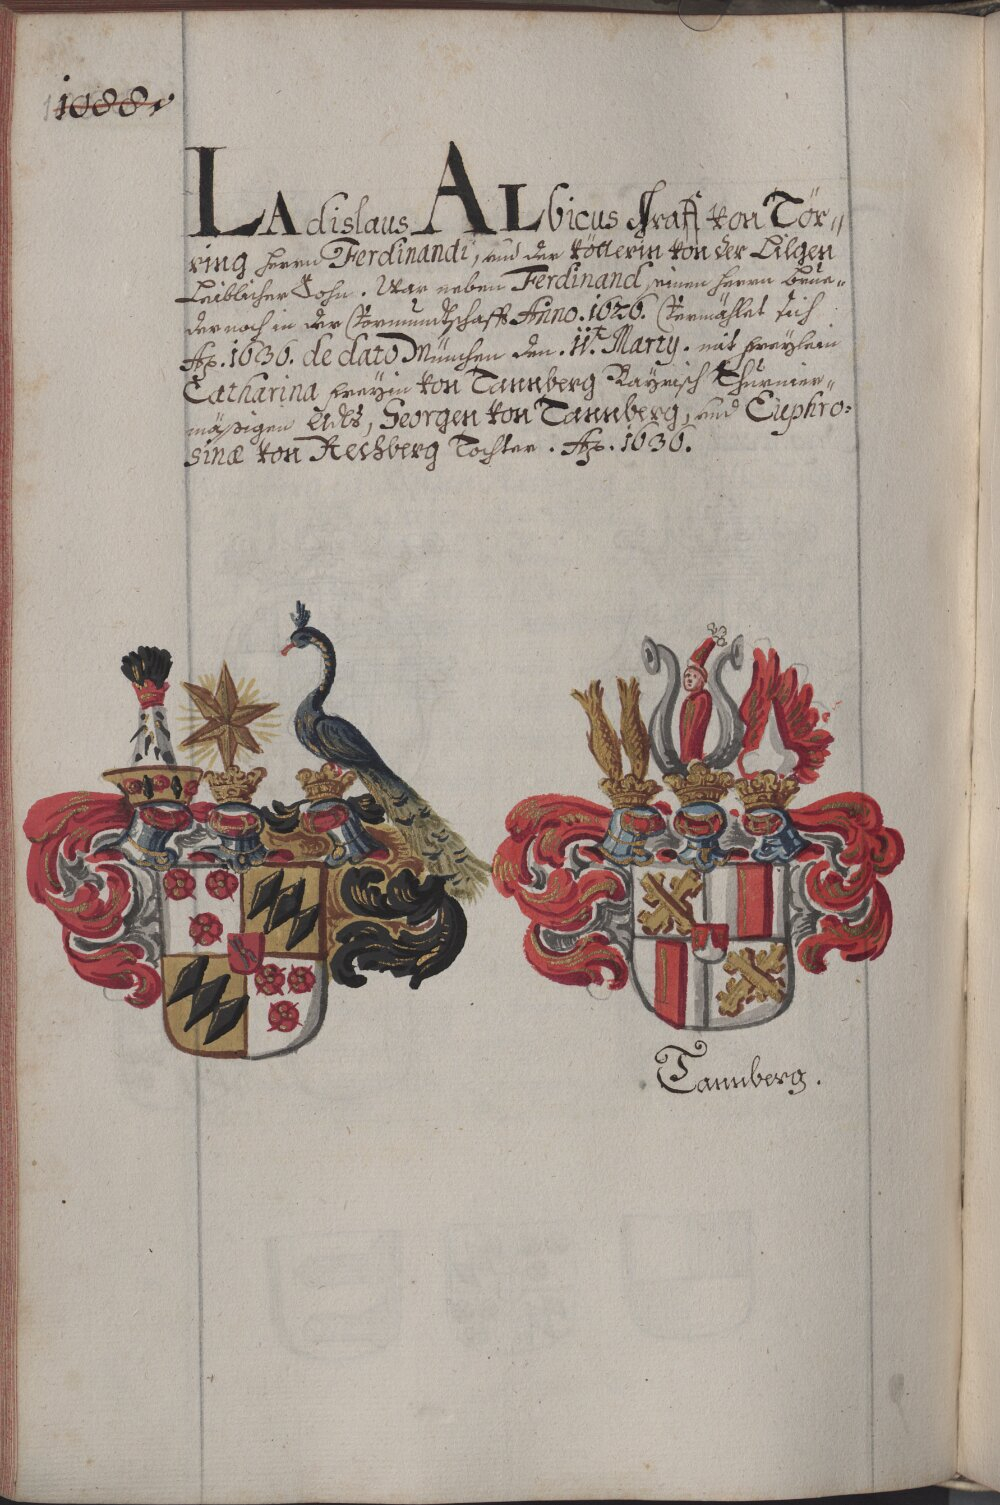 1088
LAdislaus ALbicus Graff von Tör〃
ring herrn Ferdinandi, und der von der Lilgen
Leiblicher Sohn. War neben Ferdinand, seinen herrn brue〃
der noch in der Vormundtschafft Anno. 1626. Vermählet sich
Aō. 1636. de dato München den. 11t. Marty. mit freylein
Catharina freyin von Tannberg Bayrisch Thurnier〃
mäßigen Adls, Georgen von Tannberg, und Euphro:
sinæ von Rechberg Tochter. Aō. 1636.
Tannberg.